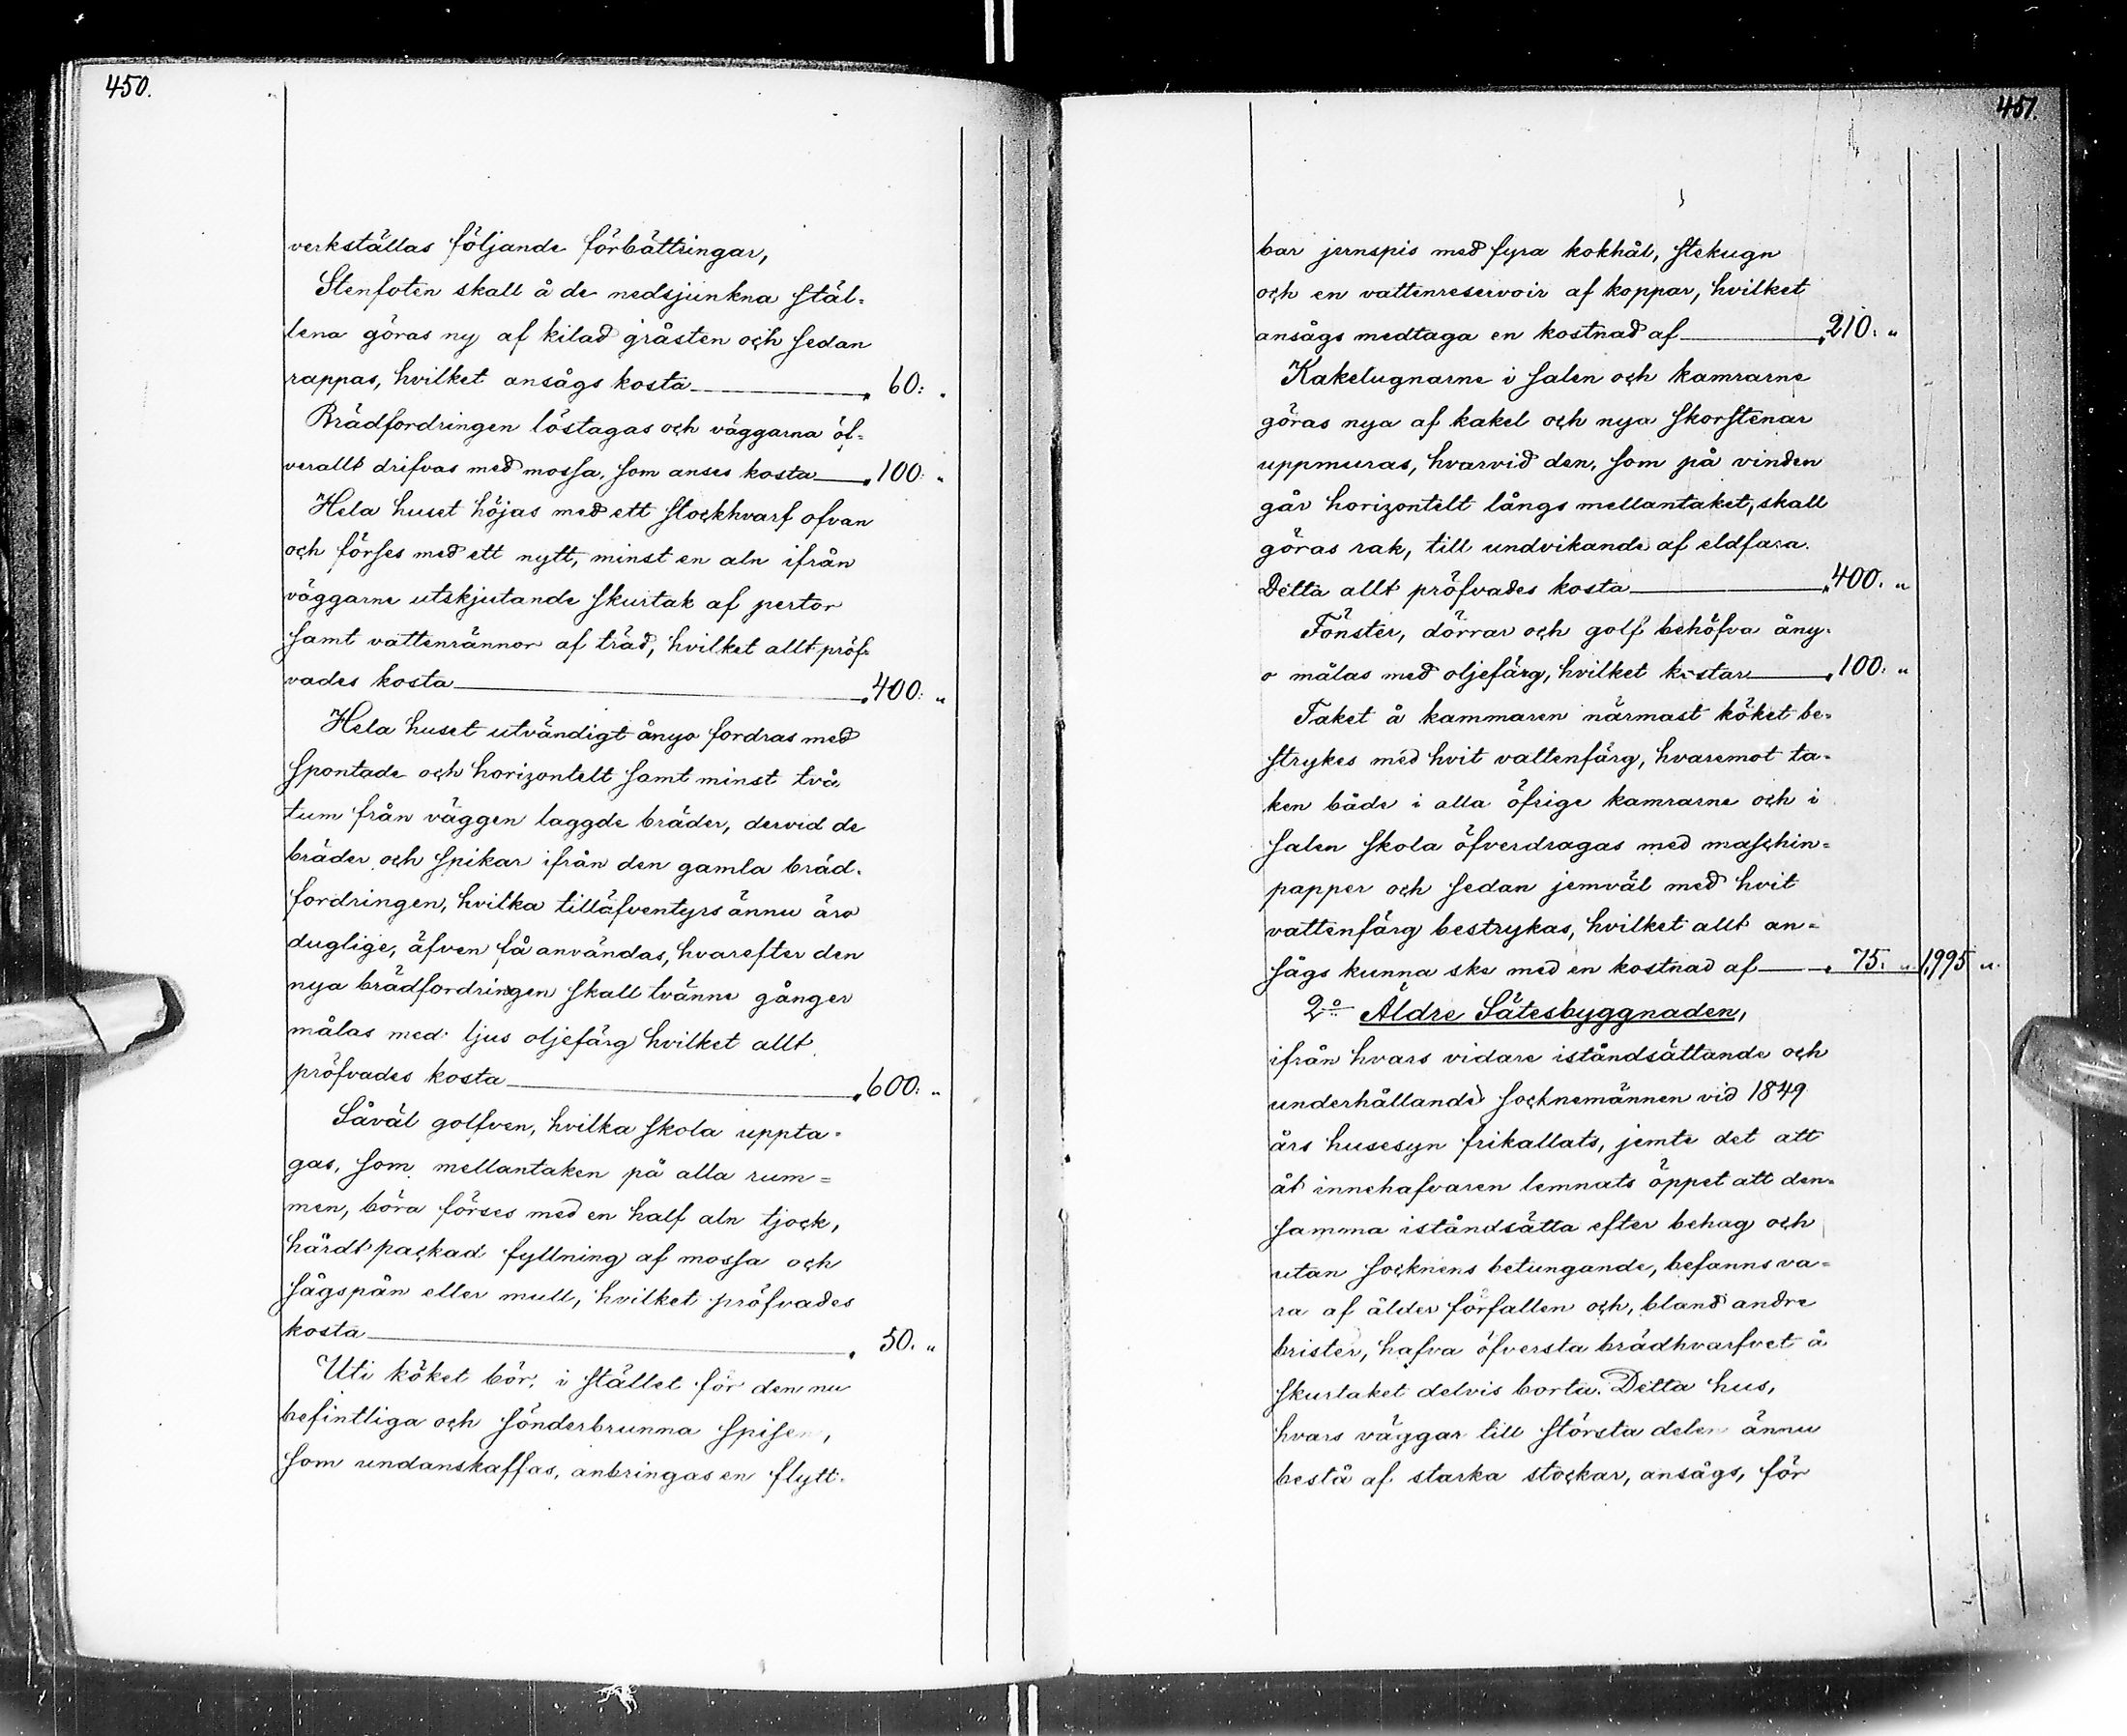 450.
verkställas följande förbättringar,
Stenfoten skall å de nedsjunkna stäl-
lena göras ny af kilad gråsten och sedan
rappas, hvilket ansågs kosta „ 60: „
Brädfordringen löstagas och väggarna öf-
verallt drifvas med mossa, som anses kosta „ 100: „
Hela huset höjas med ett stockhvarf ofvan
och förses med ett nytt, minst en aln ifrån
väggarne utskjutande skurtak af pertor
samt vattenrännor af träd, hvilket allt pröf-
vades kosta „ 400: „
Hela huset utvändigt ånyo fordras med
spontade och horizontelt samt minst två
tum från väggen laggde bräder, dervid de
bräder och spikar ifrån den gamla bräd-
fordringen, hvilka tilläfventyrs ännu äro
duglige, äfven få användas, hvarefter den
nya brädfordringen skall tvänne gånger
målas med ljus oljefärg hvilket allt
pröfvades kosta „ 600: „
Såväl golfven, hvilka skola uppta-
gas, som mellantaken på alla rum-
men, böra förses med en half aln tjock,
hårdt packad fyllning af mossa och
sågspån eller mull, hvilket pröfvades
kosta „ 50. „
Uti köket bör, i stället för den nu
befintliga och sönderbrunna spisen,
som undanskaffas, anbringas en flytt-
451.
bar jernspis med fyra kokhål, stekugn
och en vattenreservoir af koppar, hvilket
ansågs medtaga en kostnad af „ 210: „
Kakelugnarne i salen och kamrarne
göras nya af kakel och nya skorstenar
uppmuras, hvarvid den, som på vinden
går horizontelt långs mellantaket, skall
göras rak, till undvikande af eldfara.
Detta allt pröfvades kosta „ 400. „
Fönster, dörrar och golf behöfva åny-
o målas med oljefärg, hvilket kostar „ 100: „
Taket å kammaren närmast köket be-
strykes med hvit vattenfärg, hvaremot ta-
ken både i alla öfrige kamrarne och i
salen skola öfverdragas med maschin-
papper och sedan jemväl med hvit
vattenfärg bestrykas, hvilket allt an-
sågs kunna ske med en kostnad af „ 75. „ 1,995 „
2:o Äldre Sätesbyggnaden,
ifrån hvars vidare iståndsättande och
underhållande socknemännen vid 1849
års husesyn frikallats, jemte det att
åt innehafvaren lemnats öppet att den-
samma iståndsätta efter behag och
utan socknens betungande, befanns va-
ra af ålder förfallen och, bland andre
brister, hafva öfversta brädhvarfvet å
skurtaket delvis borta. Detta hus,
hvars väggar till största delen ännu
bestå af starka stockar, ansågs, för